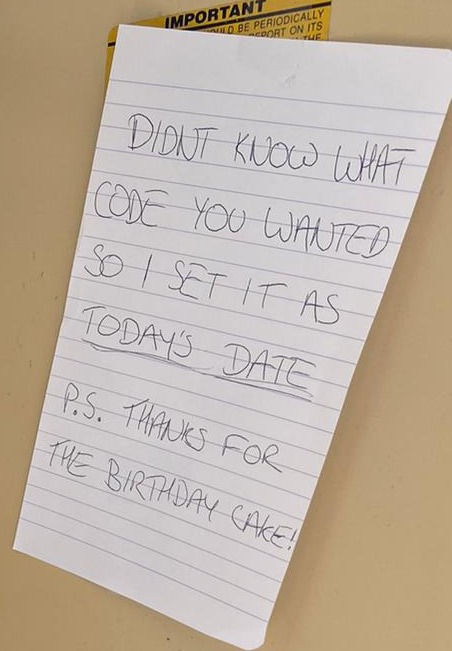 IMPORTANT
ULD BE PERIODICALLY
REPORT ON ITS
THE
DIDNT KNOW WHAT
CODE YOU WANTED
SO I SET IT AS
TODAY'S DATE
P.S. THANKS FOR
THE BIRTHDAY CAKE!